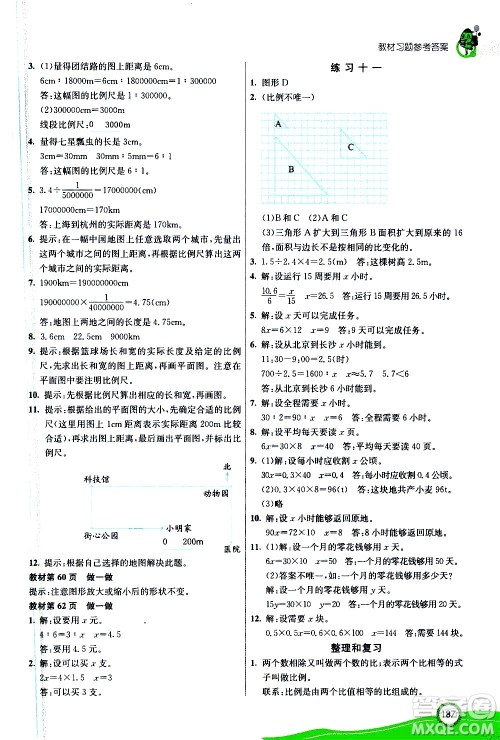 教材习题参考答案
3. (1)量得团结路的图上距离是6cm。
6cm:18000m=6cm:1800000cm=1:300000
答:这幅图的比例尺是1:300000。
(2)3000m
线段比例尺 0 3000m
4. 量得七星瓢虫的长是3cm。
3cm:5mm=30mm:5mm=6:1
答:这幅图的比例尺是6:1。
5. 3.4÷1/5000000=17000000(cm)
17000000cm=170km
答:上海到杭州的实际距离是170km。
6. 提示:在一幅中国地图上任意选取两个城市,量出
这两个城市的图上距离,再根据比例尺算出这两
个城市之间的实际距离。
7. 1900km=190000000cm
190000000×1/40000000=4.75(cm)
答:地图上两地之间的长度是4.75cm。
8. 3.6cm 22.5km 9.9cm
9. 提示:根据篮球场长和宽的实际长度及给定的比例
尺,先求出长和宽的图上距离,再画平面图。注意
平面图中要注明比例尺。
10. 提示:根据比例尺算出相应的长和宽,再画图。
11. 提示:根据给出的平面图的大小,确定合适的比例
尺(这里图上1cm表示实际距离200m比较
合适),再求出图上距离,画出平面图。注意注明
比例尺。
北
科技馆
动物园
小明家
街心公园
0 200m
医院
12. 提示:根据自己选择的地图解决此题。
教材第60页 做一做
提示:注意图形放大或缩小后的形状不变。
教材第62页 做一做
1. 解:设要用x元。
4:6=3:x x=4.5
答:要用4.5元。
2. 解:设可以买x支。
2x=4×1.5 x=3
答:可以买3支。
练习十一
1. 图形D
2. (比例不唯一)
A
C
B
(1)B和C (2)A和C
(3)三角形A扩大到三角形B,面积扩大到原来的16
倍,面积与边长不是按相同的比变化的。
3. 1.5:2.4×4=2.5(m) 答:这棵树高2.5m。
4. 解:设运行15周要用x小时。
10.6/6=x/15 x=26.5 答:要用26.5小时。
5. 解:设x天可以完成任务。
8x=6×12 x=9 答:9天可以完成任务。
6. 解:设从北京到长沙x小时可到达。
11:30-9:00=2.5(时)
700:2.5=1600:x x≈5.7
答:从北京到长沙5.7小时可到达。
7. 解:设全程需要x小时。
30:2=90:x x=6 答:全程需要6小时。
8. 解:设平均每天要读x页。
6x=30×8 x=40 答:平均每天要读40页。
9. (1)解:设每小时可收割x公顷。
5x=2 x=0.4 答:每小时可收割0.4公顷。
(2)0.4×8=3.2(公顷) 答:这块地共有小麦3.2公顷。
(3)略
10. 解:设x小时能够返回原地。
60x=50×6 x=5 答:5小时能够返回原地。
11. (1)解:设一个月的零花钱够用x天。
6x=30×10 x=50 答:一个月的零花钱够用50天。
(2)答案不唯一,如:解:设一个月的零花钱够用
y天。
15y=30×10 y=20 答:一个月的零花钱够用20天。
12. 解:设需要x块。
0.5×0.5x=0.6×0.6×100 x=144 答:需要144块。
整理和复习
1. 两个数相除又叫做两个数的比;表示两个比相等的式
子叫做比例。
联系:比例是由两个比值相等的比组成的。
187